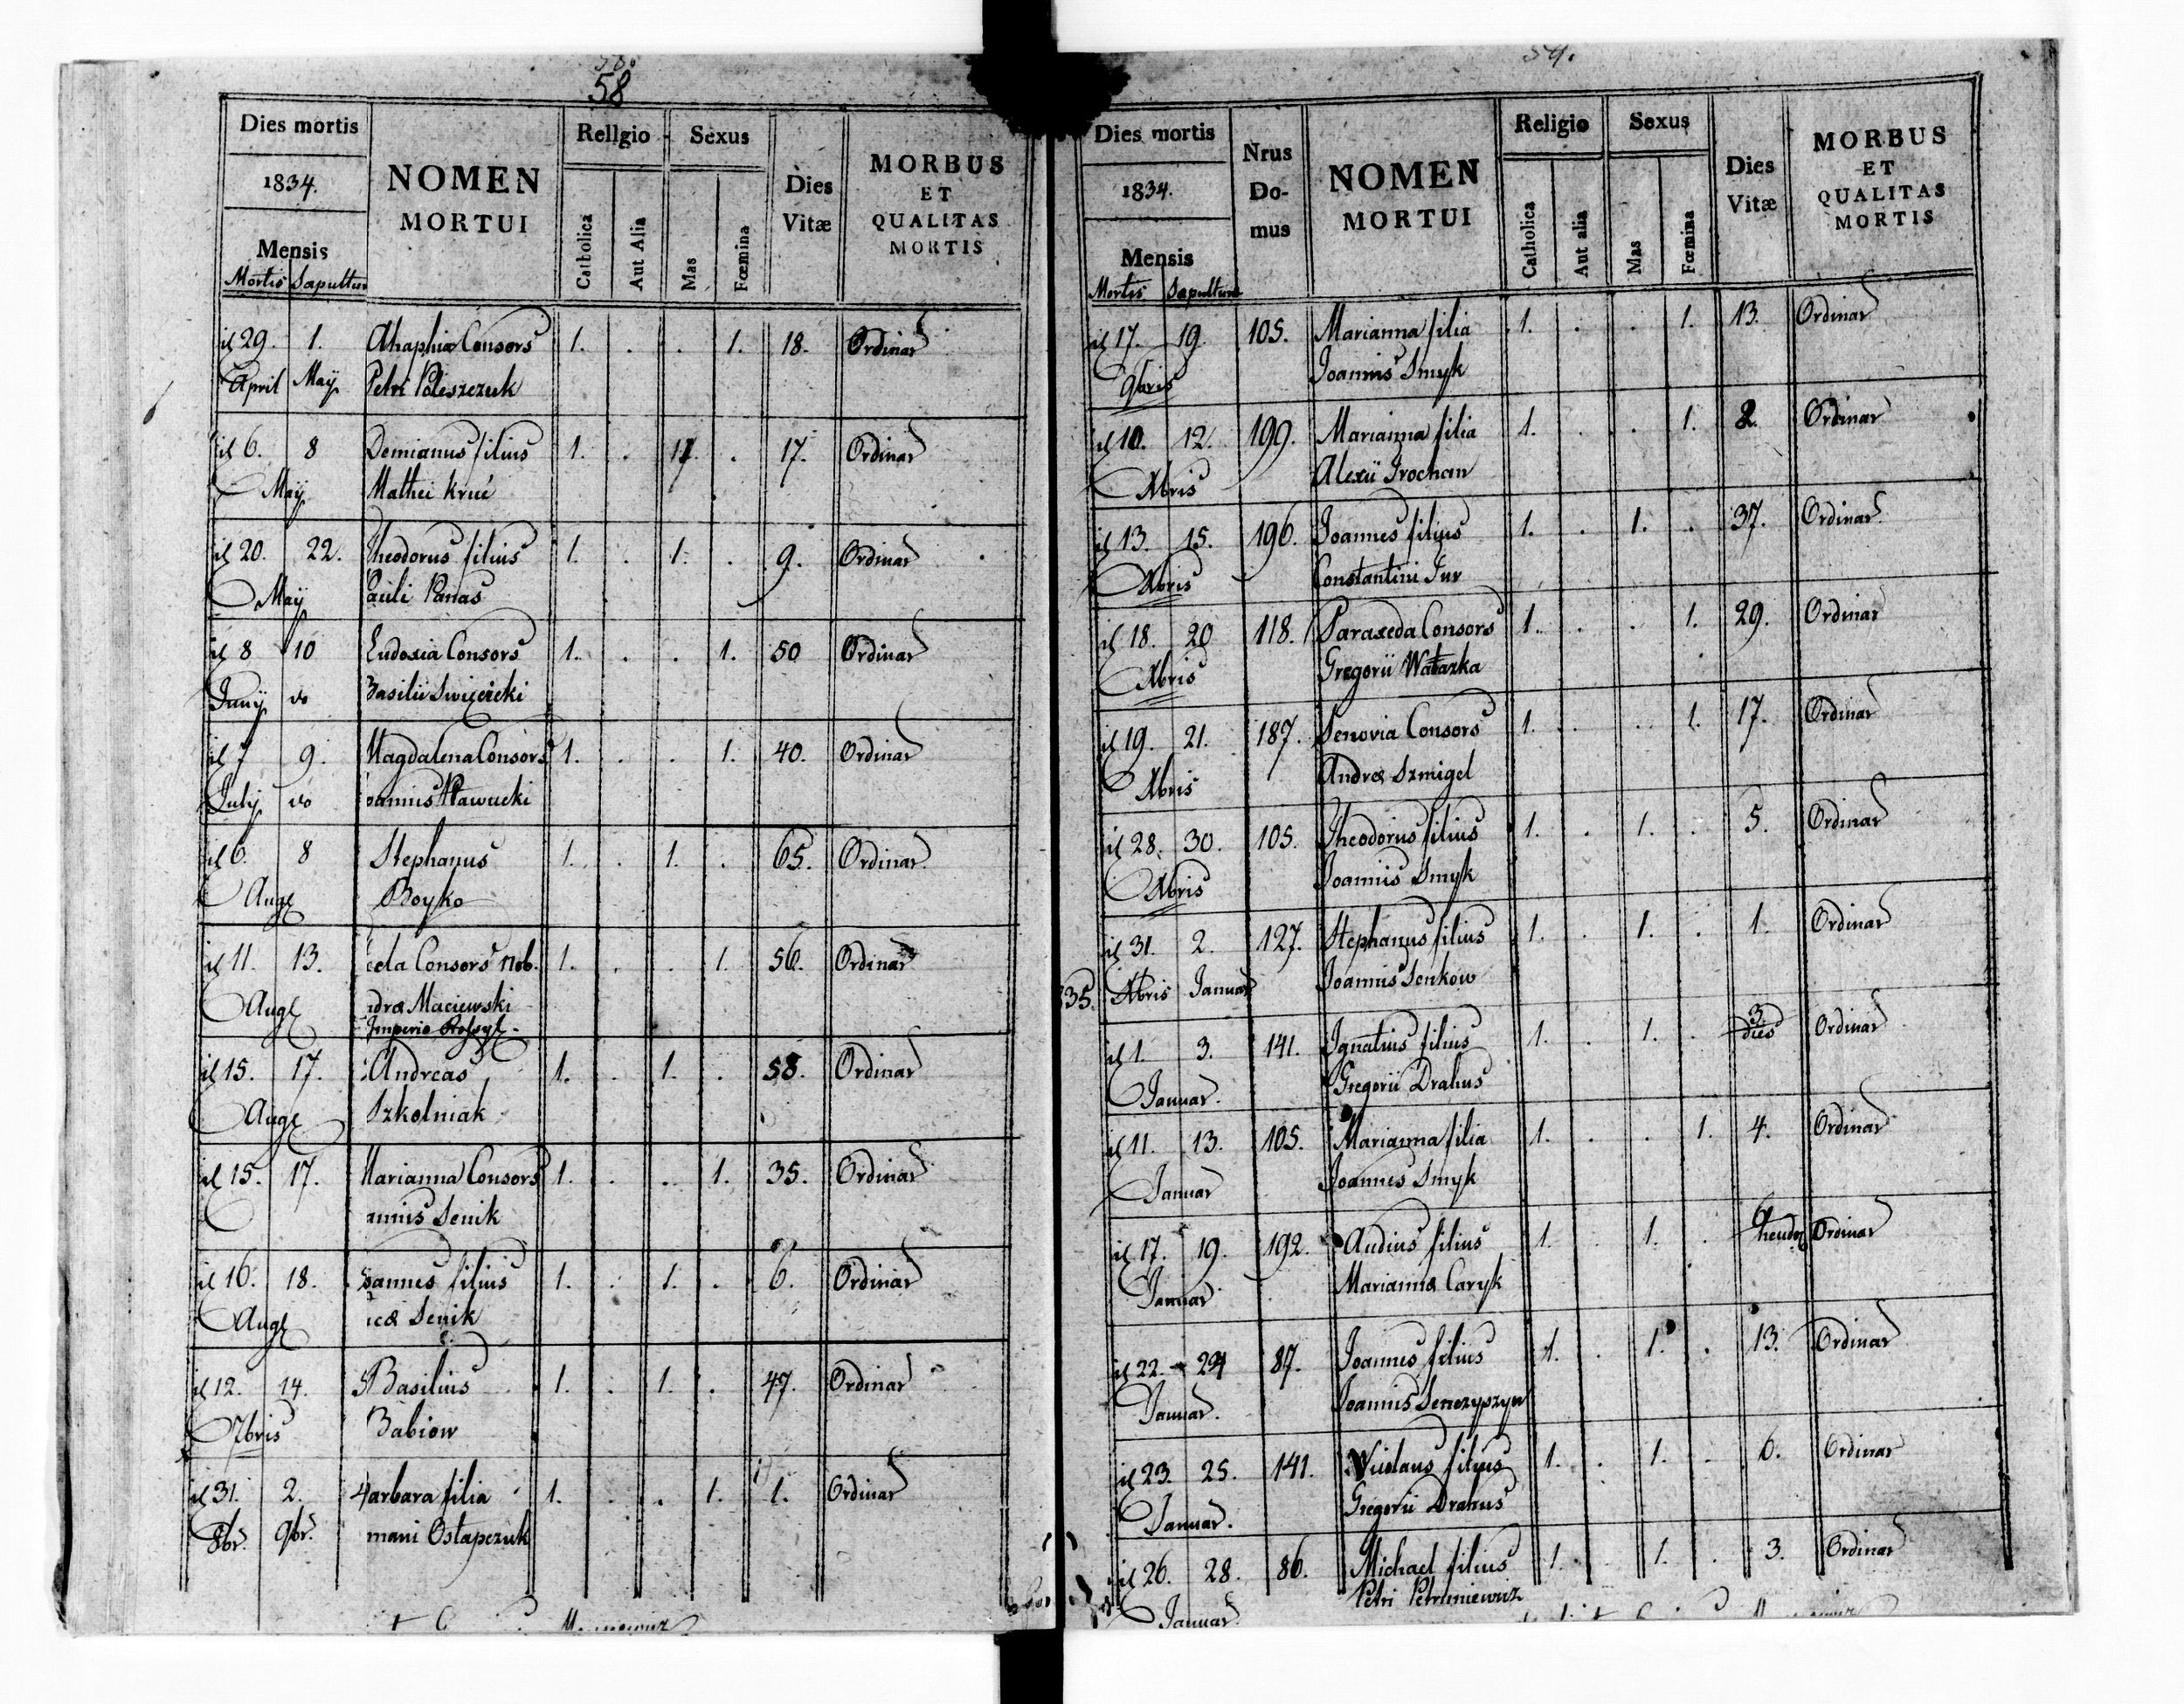 58
Dies mortis
1834.
Mensis
Mortis Sepultur
NOMEN
MORTUI
Religio
Catholica
Aut Alia
Sexus
Mas
Fœmina
Dies
Vitæ
MORBUS
ET
QUALITAS
MORTIS
il 29. 1. Ahaphia Consors 1. . . 1. 18. Ordinar
April Maij Petri Poleszczuk
il 6. 8 Demianus filius 1. . 1. . 17. Ordinar
Maij Mathei
il 20. 22. Theodorus filius 1. . 1. . 9. Ordinar
Maij Pauli Panas
il 8 10 Eudoxia Consors 1. . . 1. 50 Ordinar
Junij do Basilii Swięcicki
il 7 9. Magdalena Consors 1. . . 1. 40. Ordinar
Julij do oannis Pławucki
il 6. 8 Stephanus 1. . 1. . 65. Ordinar
Aug Boyko
il 11. 13. ecla Consors Nob. 1. . . 1. 56. Ordinar
Aug dræ Maciewski
Imperio
il 15. 17. Andreas 1. . 1. . 58. Ordinar
Aug Szkolniak
il 15. 17. Marianna Consors 1. . . 1. 35. Ordinar
annis Senik
il 16. 18. Joannes filius 1. . 1. . 6. Ordinar
Aug Senik
il 12. 14. Basilius 1. . 1. . 47. Ordinar
7bris Babiow
il 31. 2. arbara filia 1. . . 1. 1. Ordinar
8br. 9br. mani Ostapczuk
59.
Dies mortis
1834.
Mensis
Mortis Sepultura
Nrus
Do-
mus
NOMEN
MORTUI
Religio
Catholica
Aut alia
Sexus
Mas
Fœmina
Dies
Vitæ
MORBUS
ET
QUALITAS
MORTIS
il 17. 19. 105. Marianna filia 1. . . 1. 13. Ordinar
9bris Joannis Smyk
il 10. 12. 199. Marianna filia 1. . . 1. 2. Ordinar
Xbris Alexii Trochan
il 13. 15. 196. Joannes filius 1. . 1. . 37. Ordinar
Xbris Constantini
il 18. 20 118. Paraxeda Consors 1. . . 1. 29. Ordinar
Xbris Gregorii Watazka
il 19. 21. 187. Senovia Consors 1. . . 1. 17. Ordinar
Xbris Andreæ Szmigel
il 28. 30. 105. Theodorus filius 1. . 1. . 5. Ordinar
Xbris Joannis Smyk
il 31. 2. 127. Stephanus filius 1. . 1. . 1. Ordinar
Xbris Januar Joannis Senkow
835.
il 1. 3. 141. Ignatius filius 1. . 1. . 3 dies Ordinar
Januar. Gregorii Drahus
il 11. 13. 105. Marianna filia 1. . . 1. 4. Ordinar
Januar Joannes Smyk
il 17. 19. 192. Audius filius 1. . 1. . 6 Ordinar
Januar Mariannæ Caryk
il 22. 24 87. Joannes filius 1. . 1. . 13. Ordinar
Januar. Joannis
il 23. 25. 141. Nicolaus filius 1. . 1. . 6. Ordinar
Januar. Gregorii Drahus
il 26. 28. 86. Michael filius 1. . 1. . 3. Ordinar
Januar. Petri Petruniewicz